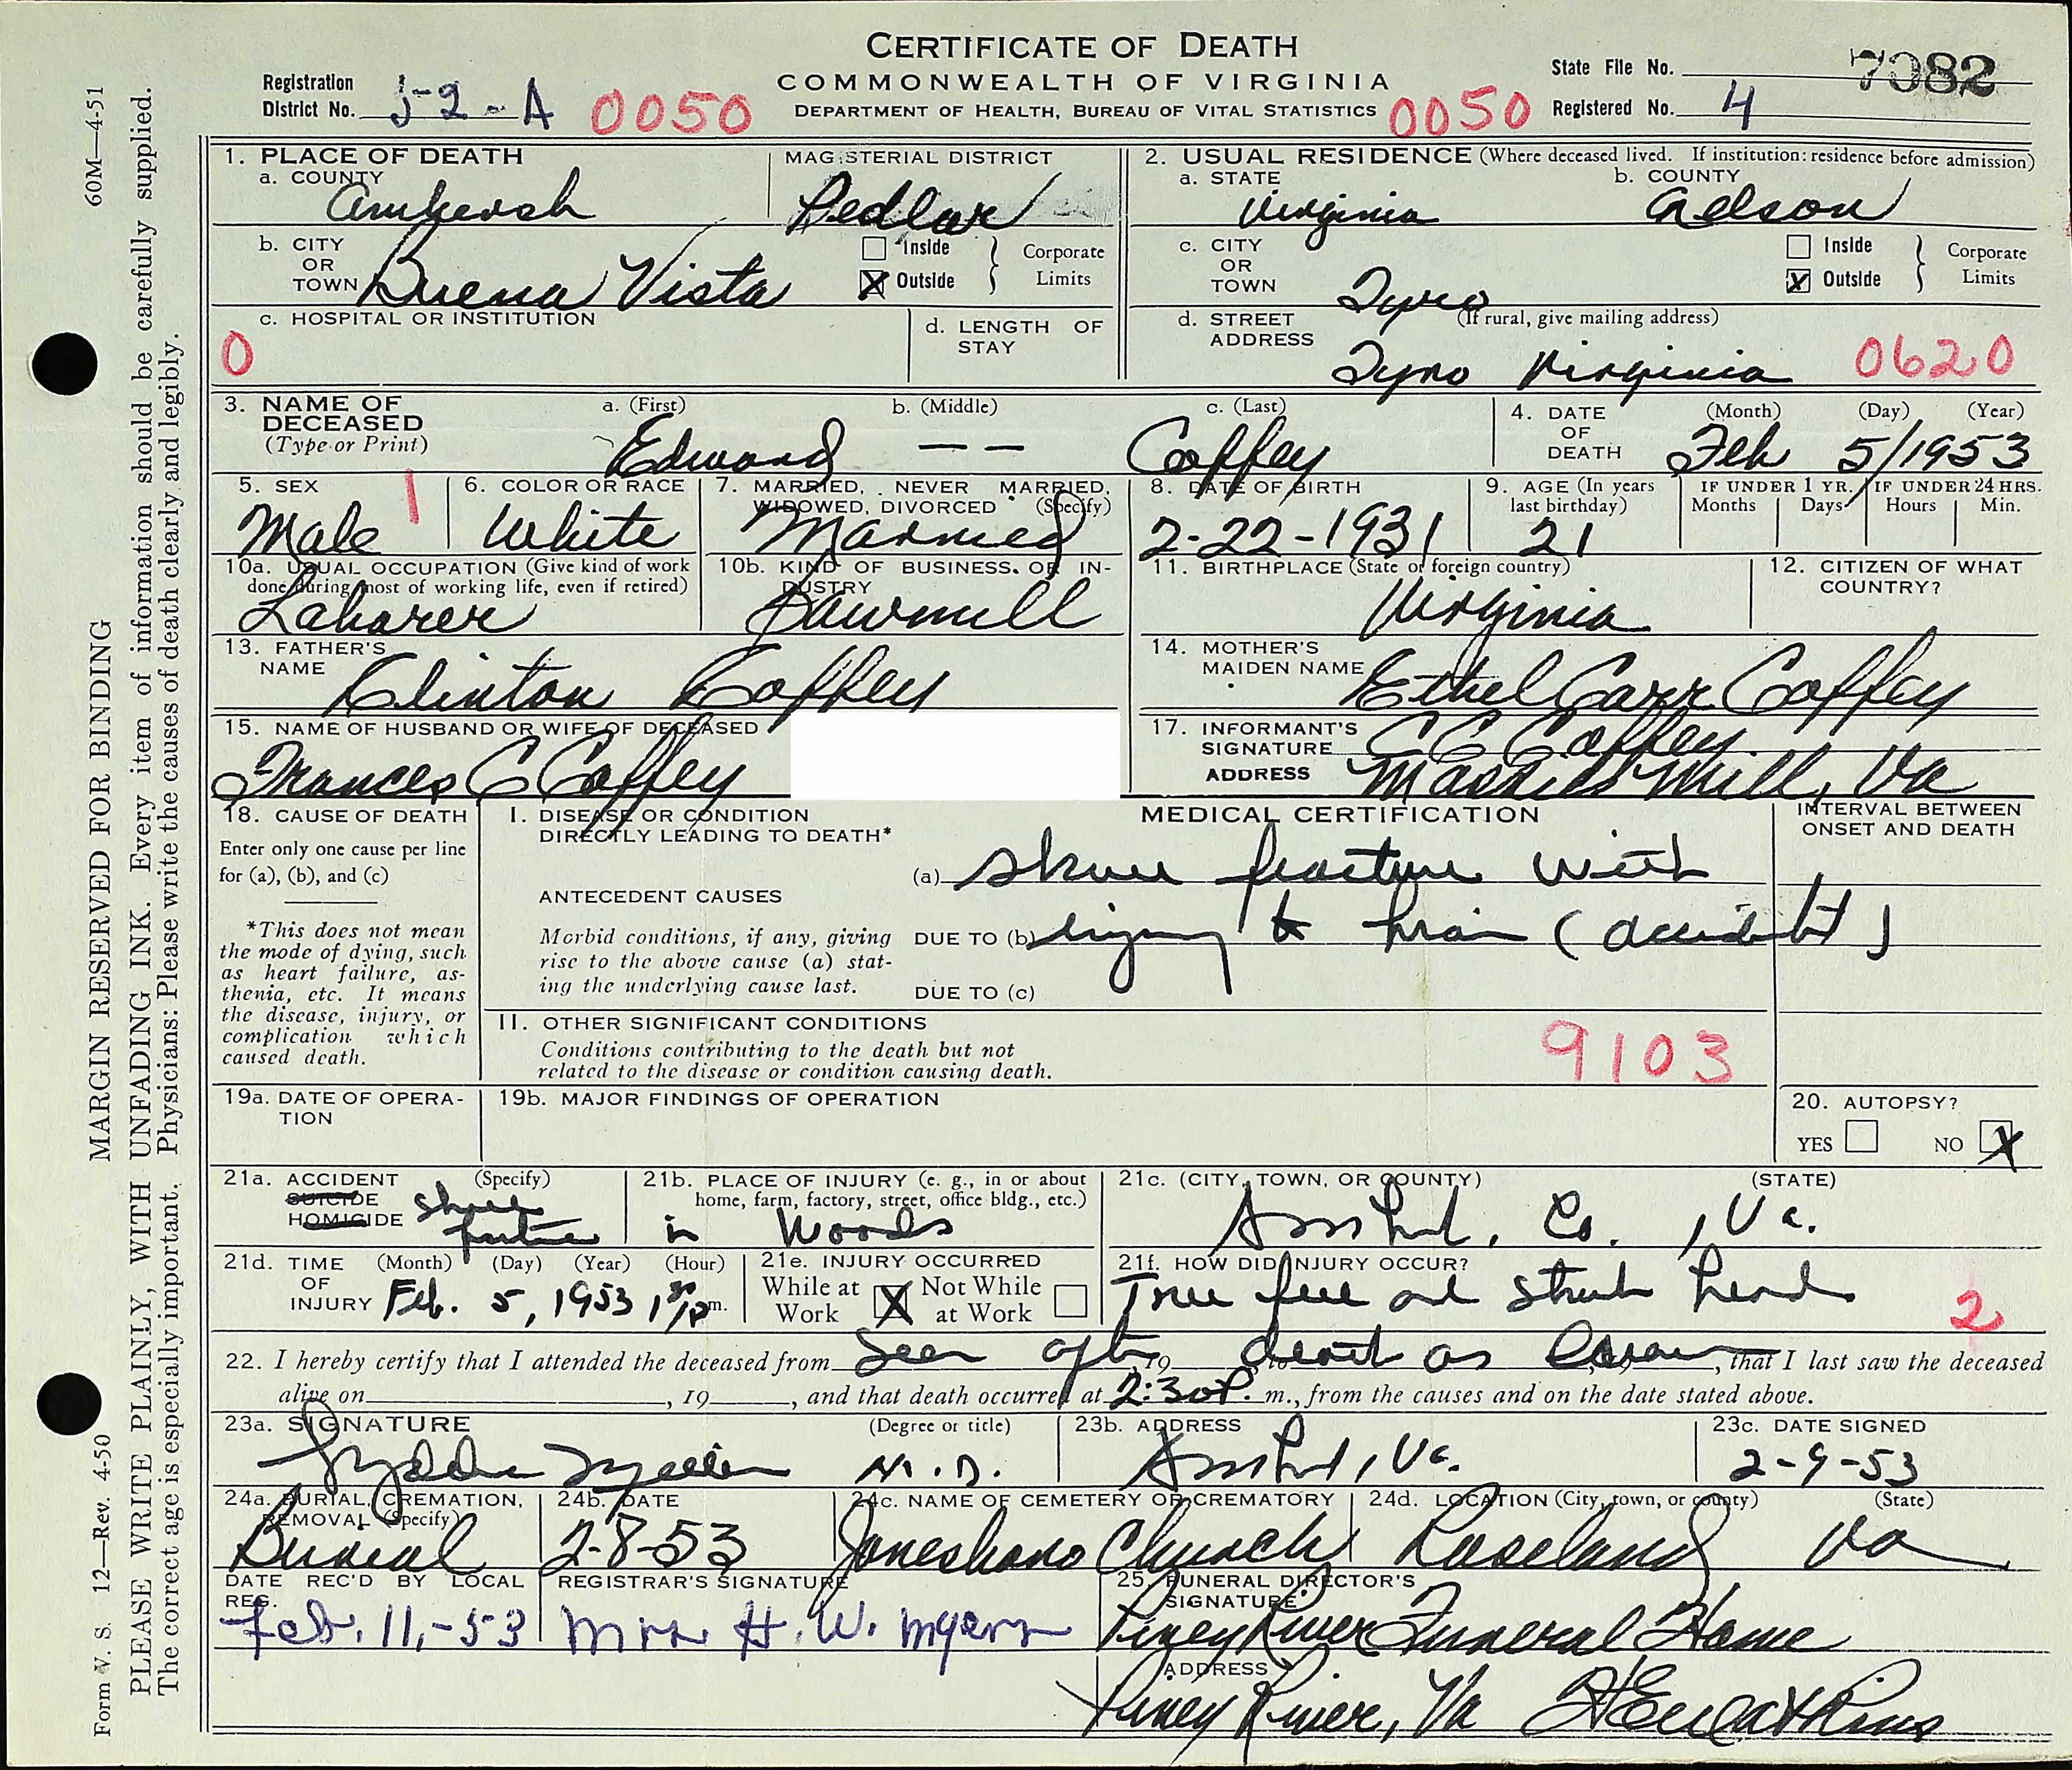 CERTIFICATE OF DEATH
COMMONWEALTH OF VIRGINIA
DEPARTMENT OF HEALTH, BUREAU OF VITAL STATISTICS
Registration District No. 52-A 0050 0050
State File No. 7082
Registered No. 4
1. PLACE OF DEATH
a. COUNTY Amherst
MAGISTERIAL DISTRICT Pedlar
b. CITY OR TOWN Buena Vista
Inside
X Outside
Corporate Limits
c. HOSPITAL OR INSTITUTION
0
d. LENGTH OF STAY
2. USUAL RESIDENCE (Where deceased lived. If institution: residence before admission)
a. STATE Virginia
b. COUNTY Nelson
c. CITY OR TOWN Tyro
Inside
X Outside
Corporate Limits
d. STREET ADDRESS (If rural, give mailing address)
Tyro Virginia 0620
3. NAME OF DECEASED (Type or Print)
a. (First) Edward
b. (Middle) — —
c. (Last) Coffey
4. DATE OF DEATH (Month) (Day) (Year)
Feb 5/1953
5. SEX Male 1
6. COLOR OR RACE White
7. MARRIED, NEVER MARRIED, WIDOWED, DIVORCED (Specify) Married
8. DATE OF BIRTH 2-22-1931
9. AGE (In years last birthday) 21
IF UNDER 1 YR. Months Days
IF UNDER 24 HRS. Hours Min.
10a. USUAL OCCUPATION (Give kind of work done during most of working life, even if retired)
Laborer
10b. KIND OF BUSINESS OR INDUSTRY
Sawmill
11. BIRTHPLACE (State or foreign country)
Virginia
12. CITIZEN OF WHAT COUNTRY?
13. FATHER'S NAME Clinton Coffey
14. MOTHER'S MAIDEN NAME Ethel Carr Coffey
15. NAME OF HUSBAND OR WIFE OF DECEASED
Frances C Coffey
17. INFORMANT'S SIGNATURE C C Coffey
ADDRESS Massies Mill, Va
18. CAUSE OF DEATH
Enter only one cause per line for (a), (b), and (c)
*This does not mean the mode of dying, such as heart failure, asthenia, etc. It means the disease, injury, or complication which caused death.
MEDICAL CERTIFICATION
INTERVAL BETWEEN ONSET AND DEATH
I. DISEASE OR CONDITION DIRECTLY LEADING TO DEATH*
(a) Skull fracture with
ANTECEDENT CAUSES
Morbid conditions, if any, giving rise to the above cause (a) stating the underlying cause last.
DUE TO (b) injury to brain (accident)
DUE TO (c)
II. OTHER SIGNIFICANT CONDITIONS
Conditions contributing to the death but not related to the disease or condition causing death.
9103
19a. DATE OF OPERATION
19b. MAJOR FINDINGS OF OPERATION
20. AUTOPSY?
YES NO X
21a. ACCIDENT SUICIDE HOMICIDE (Specify) Skull fracture
21b. PLACE OF INJURY (e. g., in or about home, farm, factory, street, office bldg., etc.)
in Woods
21c. (CITY, TOWN, OR COUNTY) (STATE)
Amherst, Co., Va.
21d. TIME OF INJURY (Month) (Day) (Year) (Hour)
Feb. 5, 1953 1 30 p m.
21e. INJURY OCCURRED
While at Work X Not While at Work
21f. HOW DID INJURY OCCUR?
Tree fell and struck head
2
22. I hereby certify that I attended the deceased from Seen after, 19 death as, that I last saw the deceased
alive on, 19, and that death occurred at 2:30 P. m., from the causes and on the date stated above.
23a. SIGNATURE (Degree or title) M.D.
23b. ADDRESS Amherst, Va.
23c. DATE SIGNED 2-9-53
24a. BURIAL, CREMATION, REMOVAL (Specify) Burial
24b. DATE 2-8-53
24c. NAME OF CEMETERY OR CREMATORY Jonesboro Church
24d. LOCATION (City, town, or county) (State)
Roseland Va
DATE REC'D BY LOCAL REG. Feb. 11,-53
REGISTRAR'S SIGNATURE Mrs H. W. Myers
25. FUNERAL DIRECTOR'S SIGNATURE
Piney River Funeral Home
ADDRESS
Piney River, Va H E Watkins
MARGIN RESERVED FOR BINDING
60M—4-51
Form V. S. 12—Rev. 4-50
PLEASE WRITE PLAINLY, WITH UNFADING INK. Every item of information should be carefully supplied.
The correct age is especially important. Physicians: Please write the causes of death clearly and legibly.